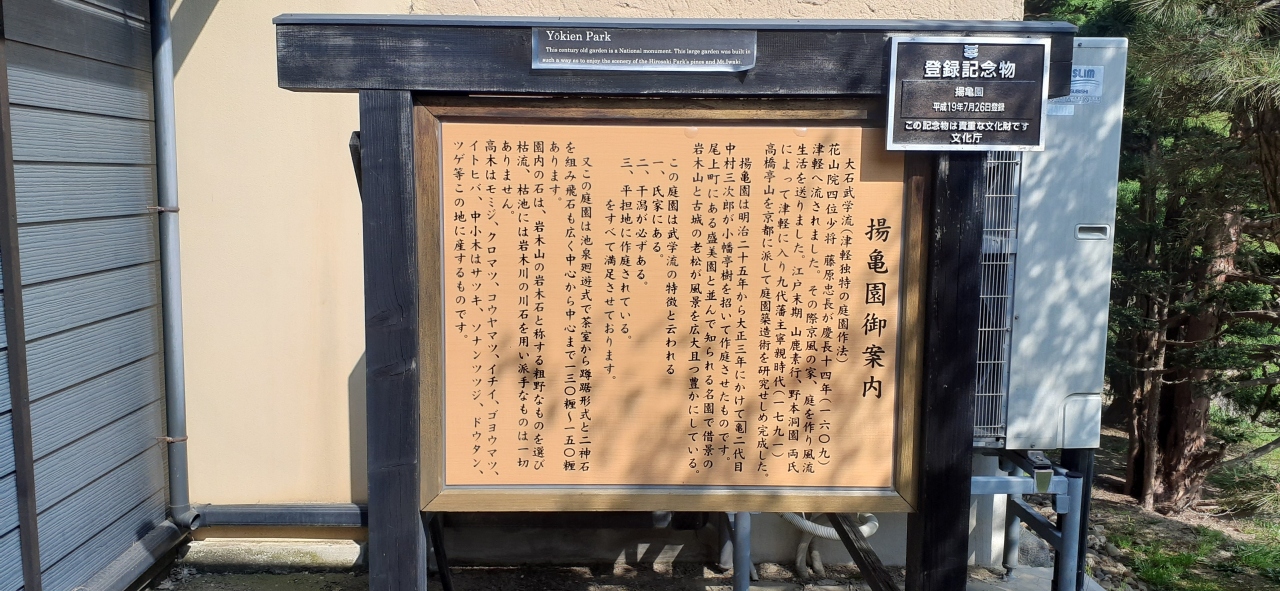 Yōkien Park
This century old garden is a National monument. This large garden was built in
such a way as to enjoy the scenery of the Hirosaki Park's pines and Mt.Iwaki.
登録記念物
揚亀園
平成19年7月26日登録
この記念物は貴重な文化財です
文化庁
SLIM
揚亀園御案内
大石武学流(津軽独特の庭園作法)
花山院四位少将 藤原忠長が慶長十四年(一六〇九)
津軽へ流されました。その際京風の家、庭を作り風流
生活を送りました。江戸末期 山鹿素行、野本洞園 両氏
によって津軽に入り九代藩主寧親時代(一七九一)
高橋亭山を京都に派して庭園築造術を研究せしめ完成した。
揚亀園は明治二十五年から大正三年にかけて亀二代目
中村三次郎が小幡亭樹を招いて作庭させたものです。
尾上町にある盛美園と並んで知られる名園で借景の
岩木山と古城の老松が風景を広大且つ豊かにしている。
この庭園は武学流の特徴と云われる
一、氏家にある。
二、干潟が必ずある。
三、平担地に作庭されている。
をすべて満足させております。
又この庭園は池泉廻遊式で茶室から蹲踞形式と二神石
を組み飛石も広く中心から中心まで一三〇糎〜一五〇糎
あります。
園内の石は、岩木山の岩木石と称する粗野なものを選び
枯流、枯池には岩木川の川石を用い派手なものは一切
ありません。
高木はモミジ、クロマツ、コウヤマツ、イチイ、ゴヨウマツ、
イトヒバ、中小木はサツキ、ソナンツツジ、ドウタン、
ツゲ等この地に産するものです。